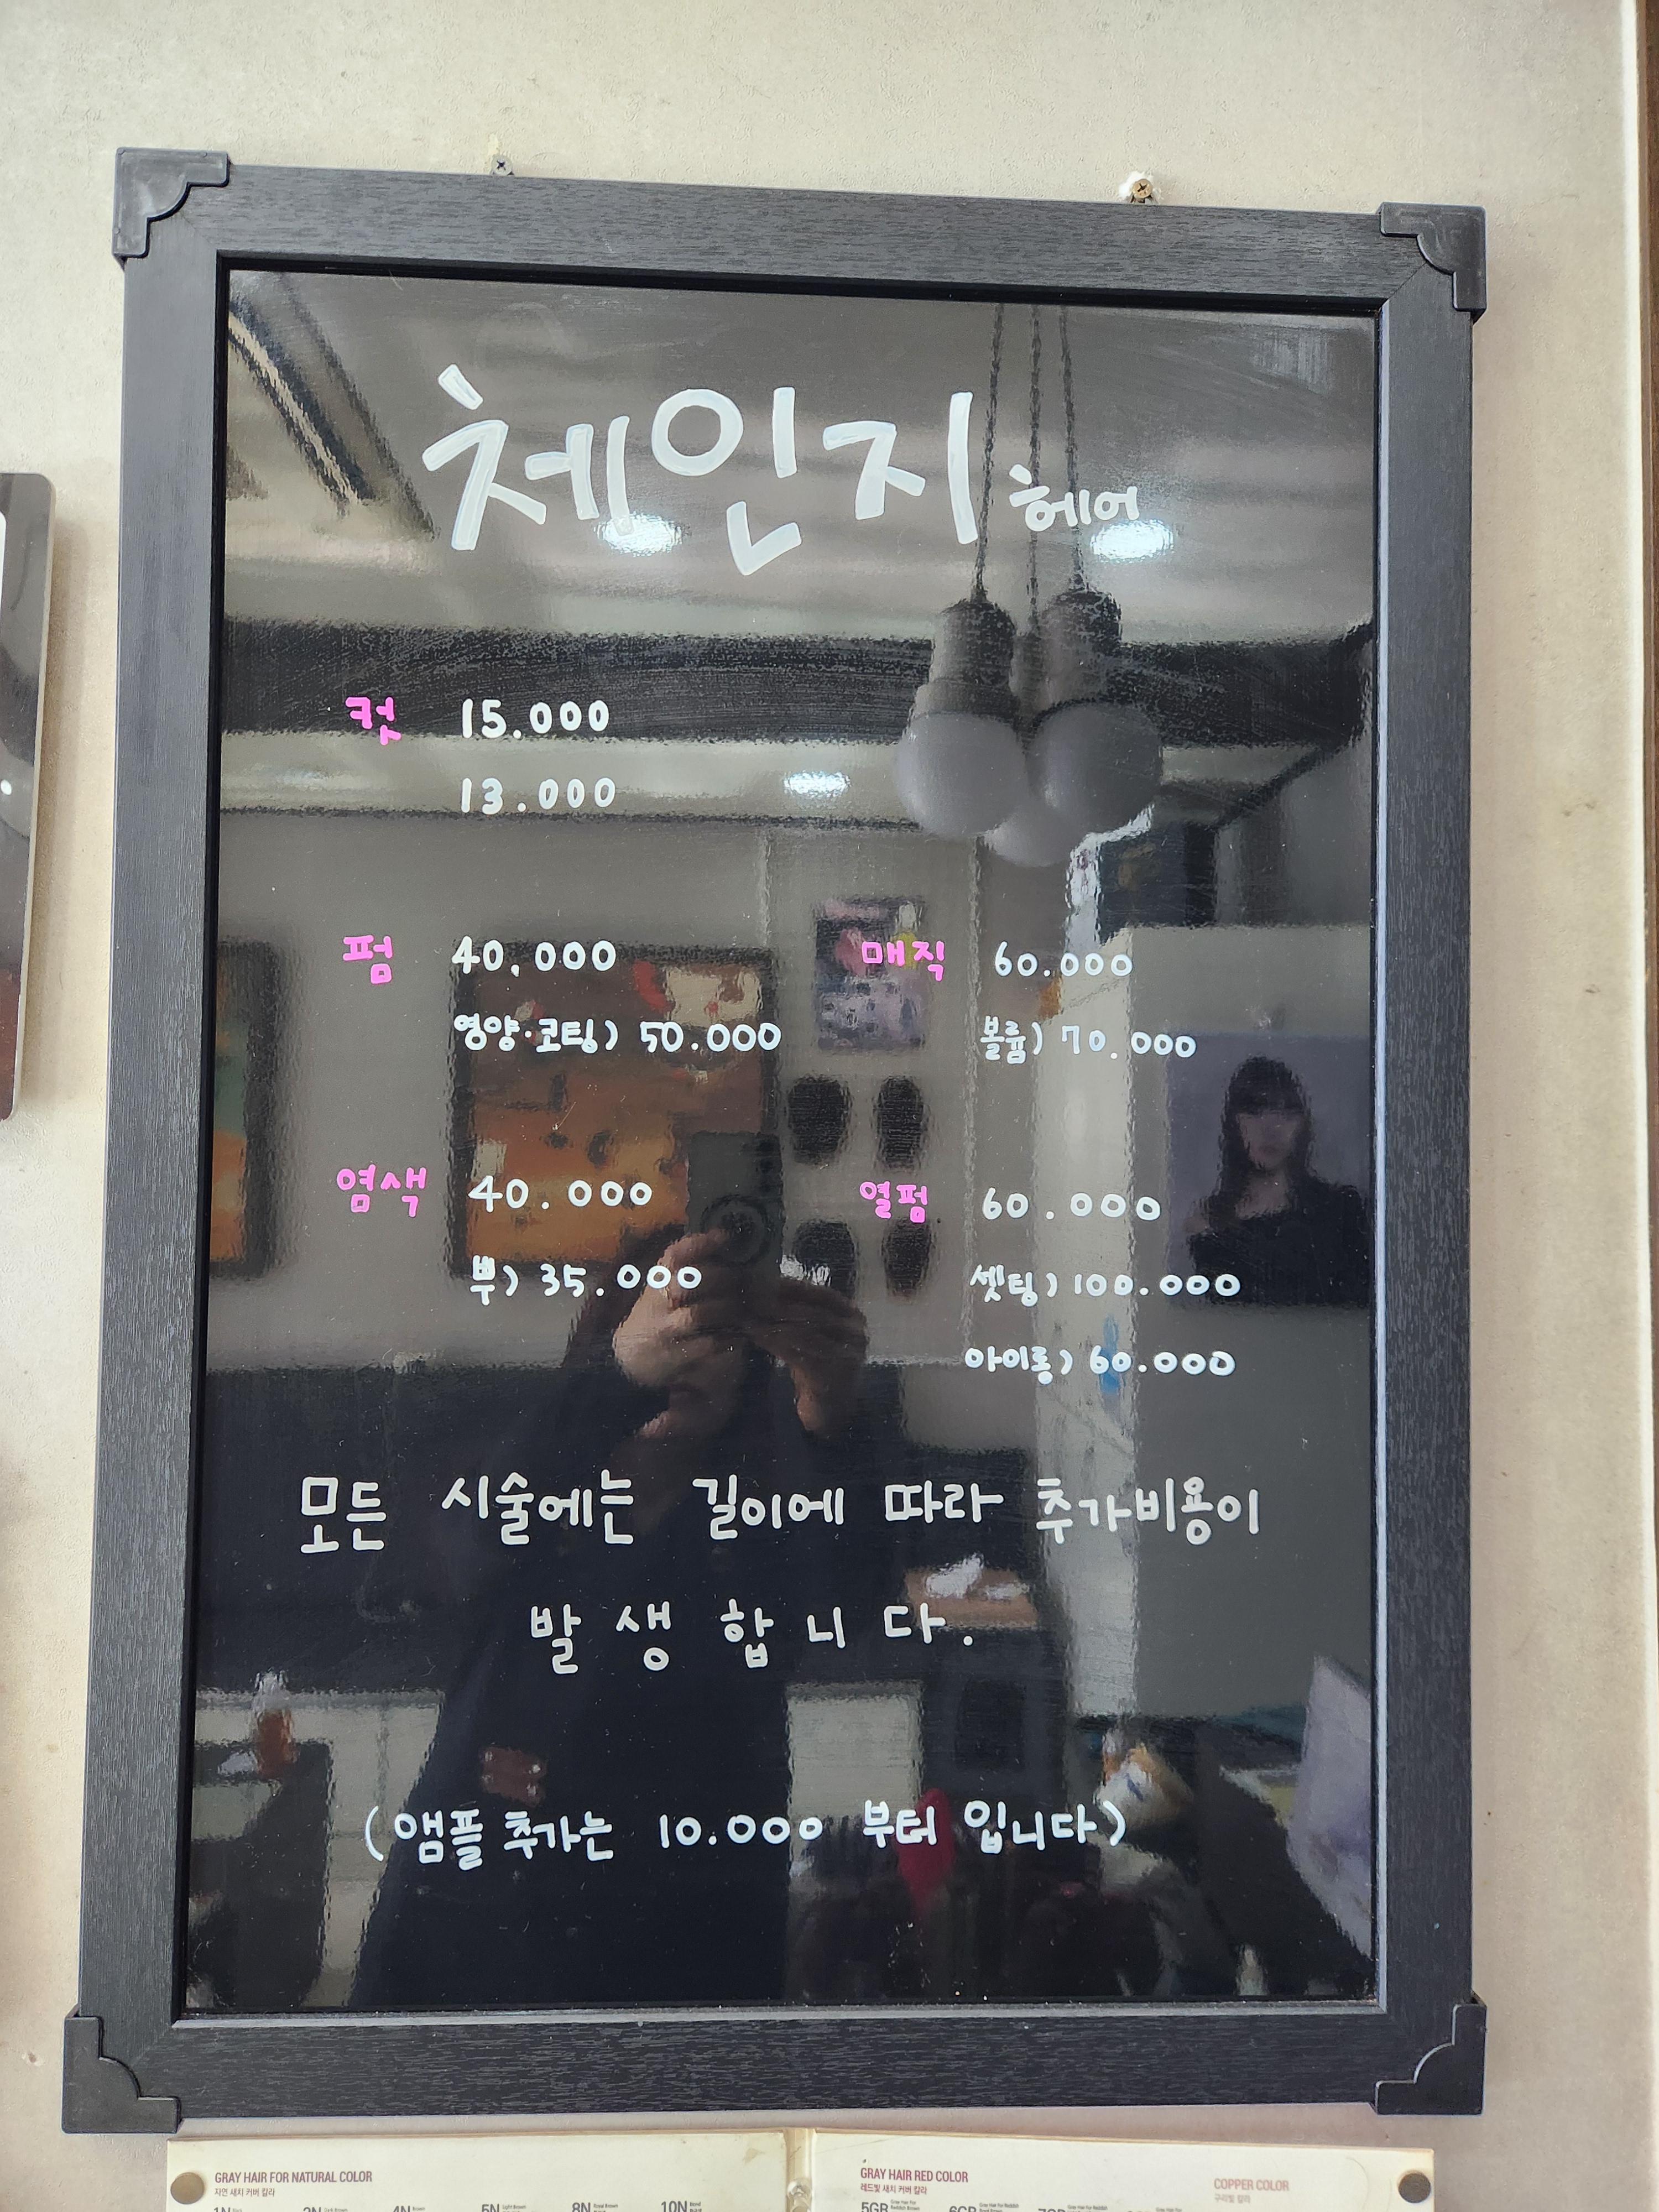 체인지 헤어
컷 15.000
13.000
펌 40,000
영양·코팅) 50.000
매직 60.000
볼륨) 70.000
염색 40.000
뿌) 35.000
열펌 60.000
셋팅) 100.000
아이롱) 60.000
모든 시술에는 길이에 따라 추가비용이
발생합니다.
(앰플 추가는 10.000 부터 입니다)
GRAY HAIR FOR NATURAL COLOR
자연 새치 커버 칼라
1N 3N 4N 5N 8N 10N
GRAY HAIR RED COLOR
레드빛 새치 커버 칼라
5GR 6GR
COPPER COLOR
구리빛 칼라